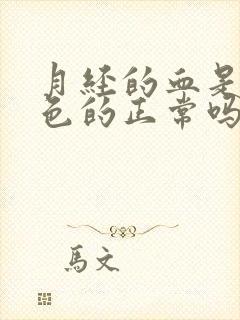 月经的血是
色的正常吗
馬文